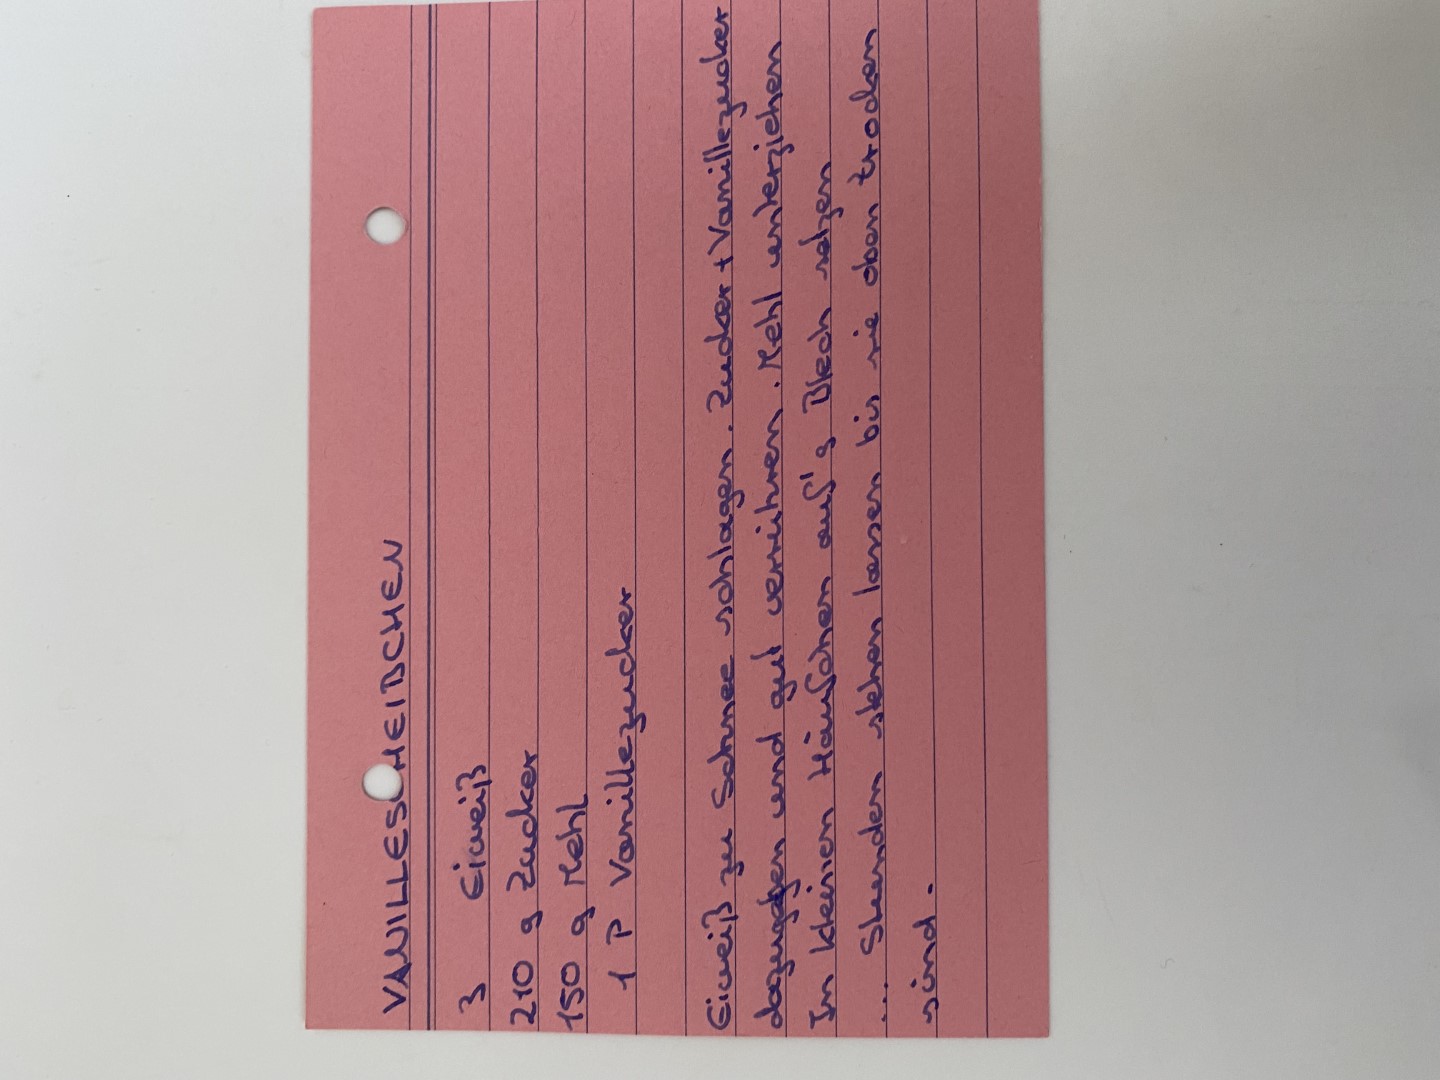 VANILLESCHEIBCHEN
3 Eiweiß
210 g Zucker
150 g Mehl
1 P Vanillezucker
Eiweiß zu Schnee schlagen. Zucker + Vanillezucker
dazugeben und gut verrühren. Mehl unterziehen
In kleinen Häufchen auf's Blech setzen
... Stunden stehen lassen bis sie oben trocken
sind.